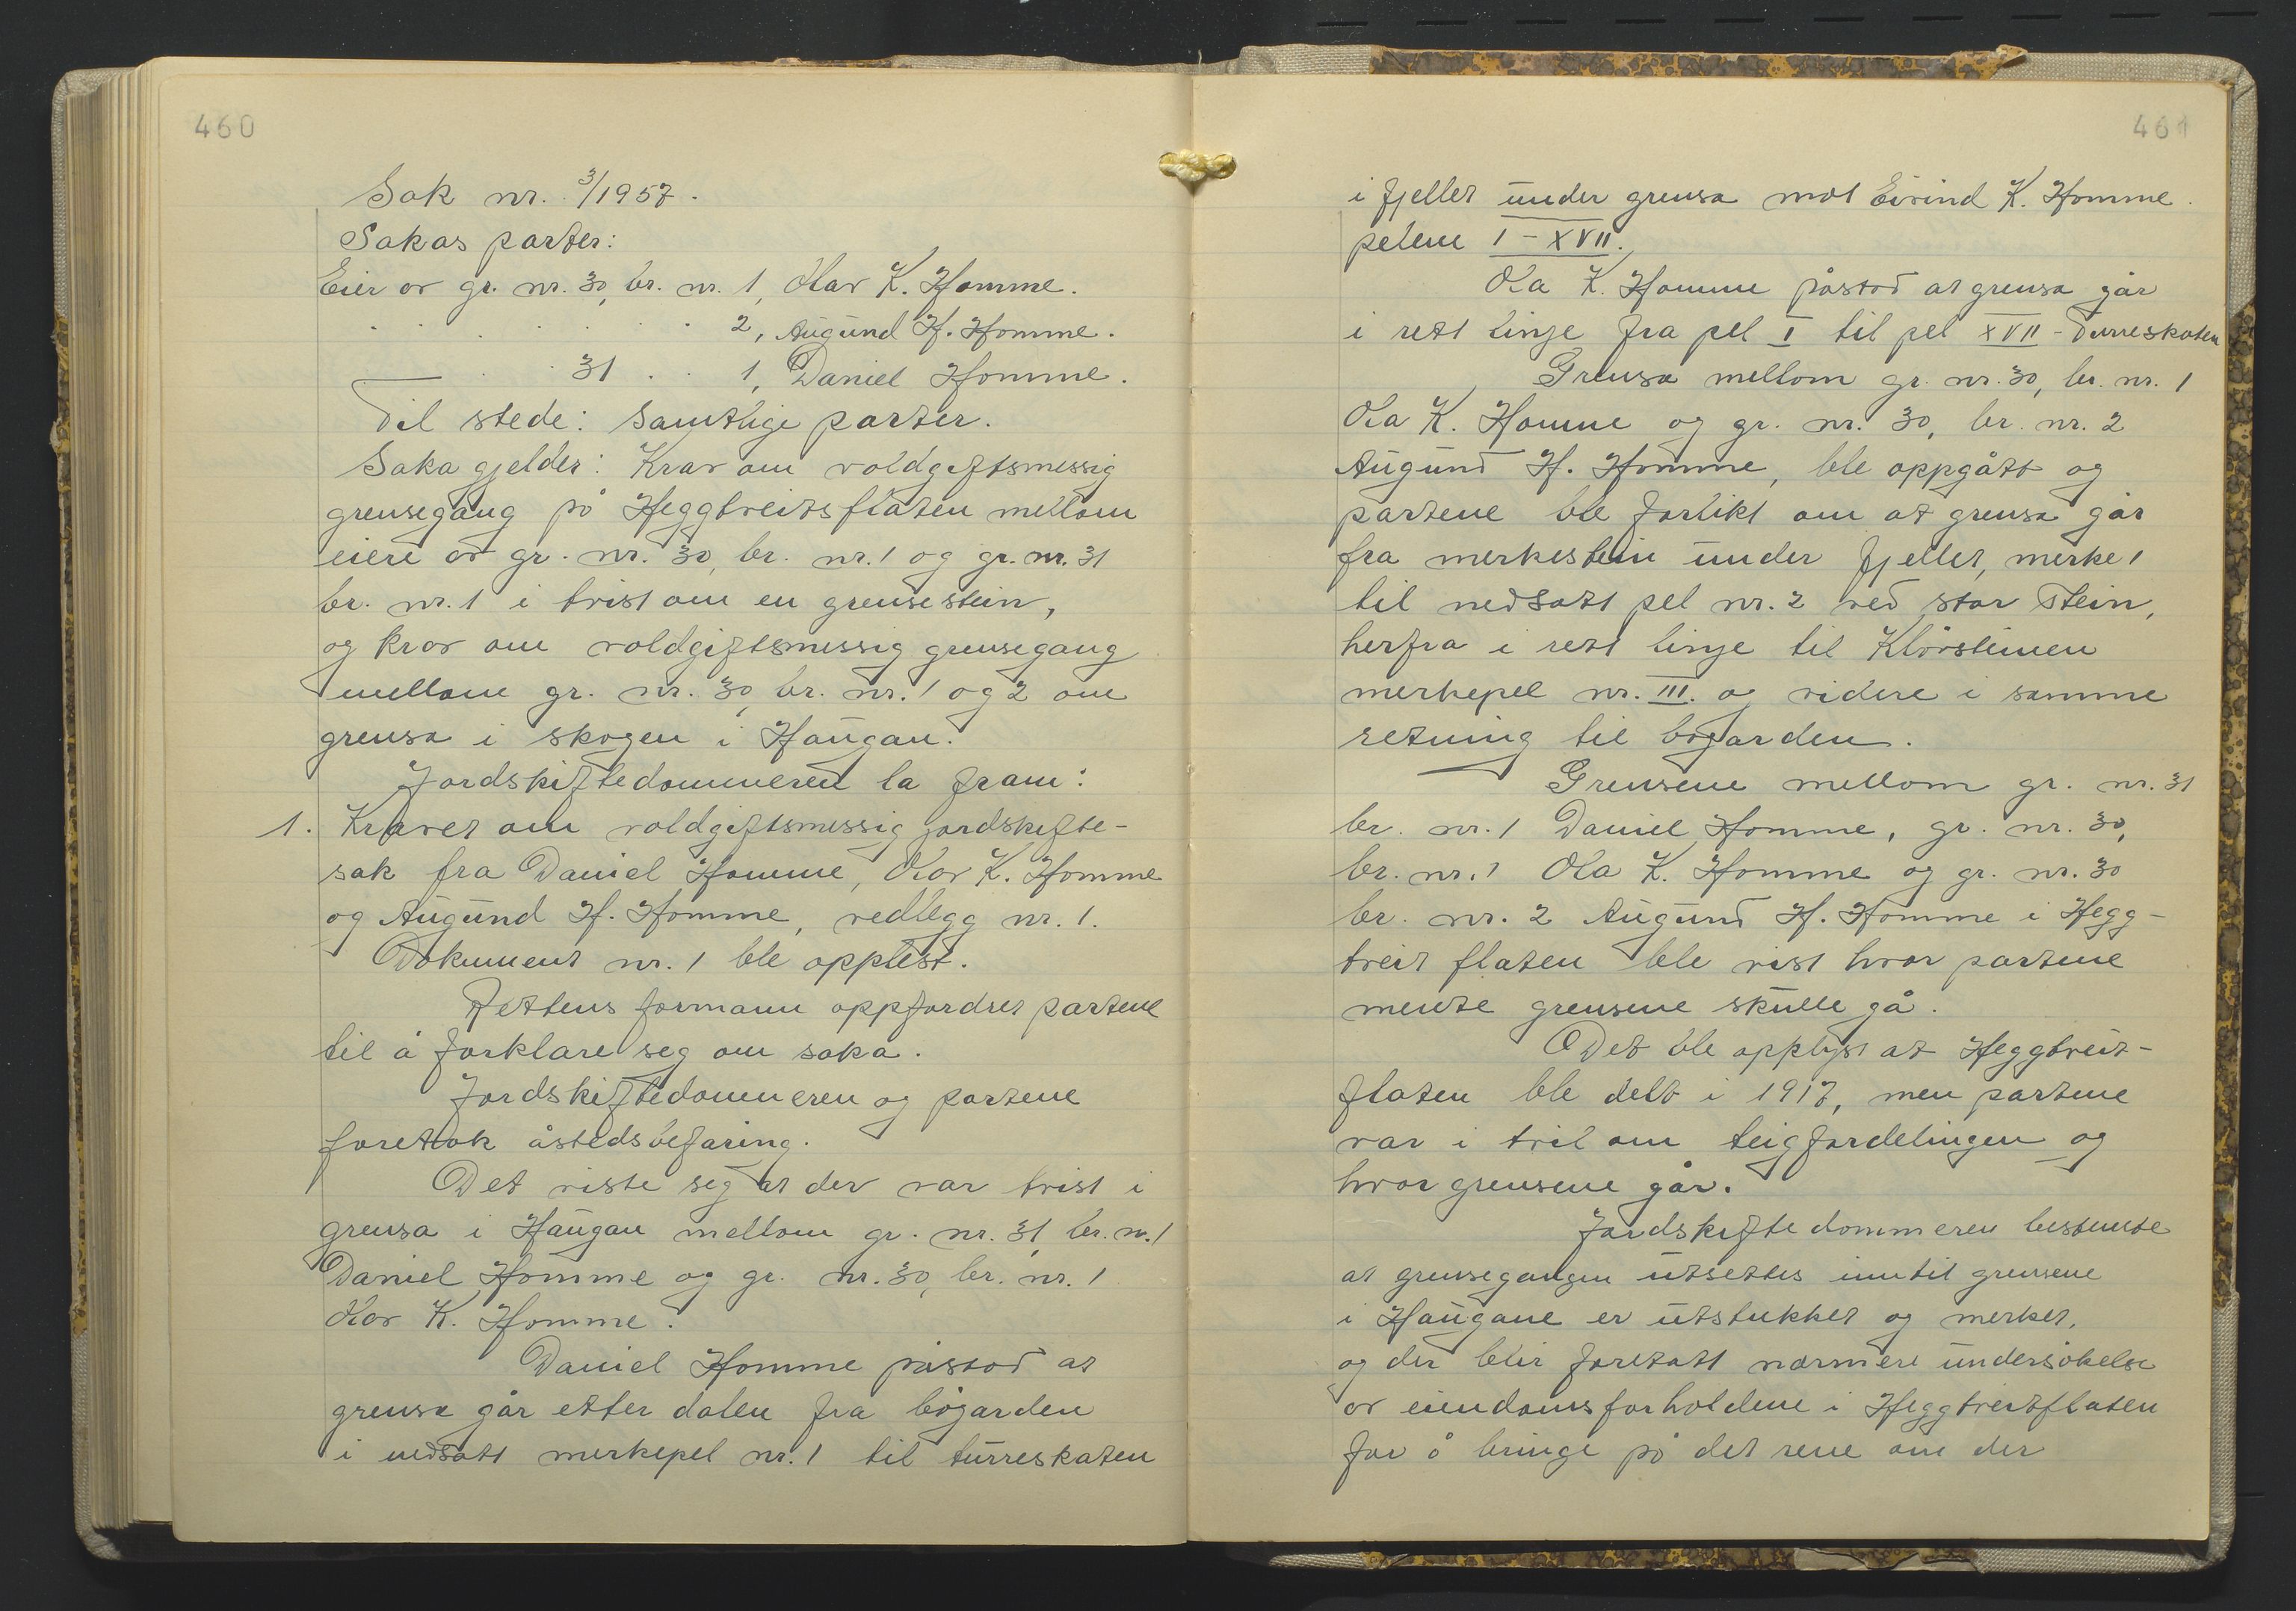 460
Sak nr. 3/1957.
Sakas parter:
Eier av gr. nr. 30, br. nr. 1, Olav K. Homme.
. . . . . . . 2, Augund H. Homme.
— . . 31 . . 1, Daniel Homme.
Til stede: Samtlige parter.
Saka gjelder: Krav om voldgiftsmessig
grensegang på Heggtveitsflaten mellom
eiere av gr. nr. 30, br. nr. 1 og gr. nr. 31
br. nr. 1 i tvist om en grensestein,
og krav om voldgiftsmessig grensegang
mellom gr. nr. 30, br. nr. 1 og 2 om
grensa i skogen i Haugan.
Jordskiftedommeren la fram:
1. Kravet om voldgiftsmessig jordskifte-
sak fra Daniel Homme, Olav K. Homme
og Augund H. Homme, vedlegg nr. 1.
Dokument nr. 1 ble opplest.
Rettens formann oppfordret partene
til å forklare seg om saka.
Jordskiftedommeren og partene
foretok åstedsbefaring.
Det viste seg at der var tvist i
grensa i Haugan mellom gr. nr. 31, br. nr. 1
Daniel Homme og gr. nr. 30, br. nr. 1
Olav K. Homme.
Daniel Homme påstod at
grensa går etter dalen fra bøgarden
i nedsatt merkepel nr. 1 til turreskaten
461
i fjellet under grensa mot Eivind K. Homme.
pelene I - XVII.
Ola K. Homme påstod at grensa går
i rett linje fra pel I til pel XVII - Turreskaten
Grensa mellom gr. nr. 30, br. nr. 1
Ola K. Homme og gr. nr. 30, br. nr. 2
Augund H. Homme, ble oppgått og
partene ble forlikt om at grensa går
fra merkestein under fjellet, merke 1
til nedsatt pel nr. 2 ved stor stein,
herfra i rett linje til Kløvsteinen
merkepel nr. III. og videre i samme
retning til bøgarden.
Grensene mellom gr. nr. 31
br. nr. 1 Daniel Homme, gr. nr. 30,
br. nr. 1 Ola K. Homme og gr. nr. 30
br. nr. 2 Augund H. Homme i Hegg-
tveit flaten ble vist hvor partene
mente grensene skulle gå.
Det ble opplyst at Heggtveit-
flaten ble delt i 1917, men partene
var i tvil om teigfordelingen og
hvor grensene går.
Jordskiftedommeren bestemte
at grensegangen utsettes inntil grensene
i Haugane er utstukket og merket,
og der blir foretatt nærmere undersøkelse
av eiendomsforholdene i Heggtveitflaten
for å bringe på det rene om der